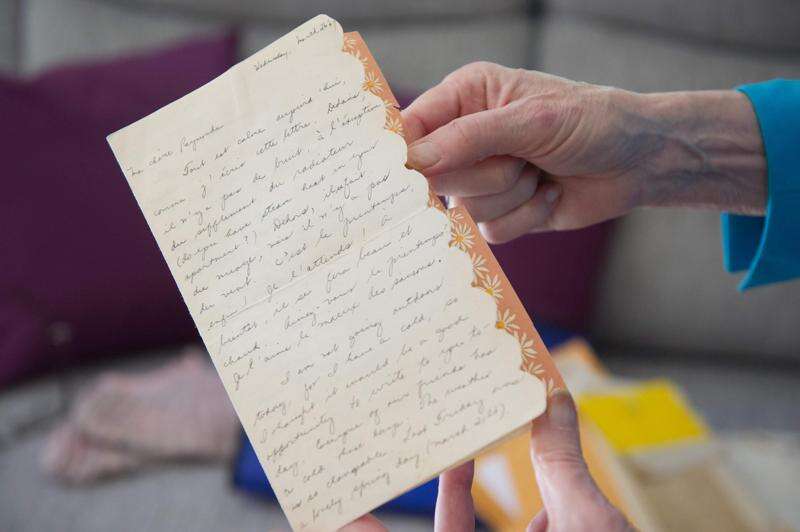 Wednesday, March 26
Ma chère Raymonde
Tout est calme aujourd'hui
comme j'écris cette lettre. Dehors,
il n'y a pas de bruit, à l'exception
du supplement du radiateur
(do you have steam heat in your
apartment?) Dehors, il fait
du nuage, mais il n'y a pas
du vent. C'est le printemps,
enfin! Je l'attends! A
bientôt, il se fera beau et
chaud. Aimez-vous le printemps?
Je l'aime le mieux des saisons.
I am not going outdoors
today, for I have a cold, so
I thought it would be a good
opportunity to write to you to-
day. Everyone of my friends has
a cold these days. The weather
is so changeable. Last Friday was
a lovely spring day (March 21st)